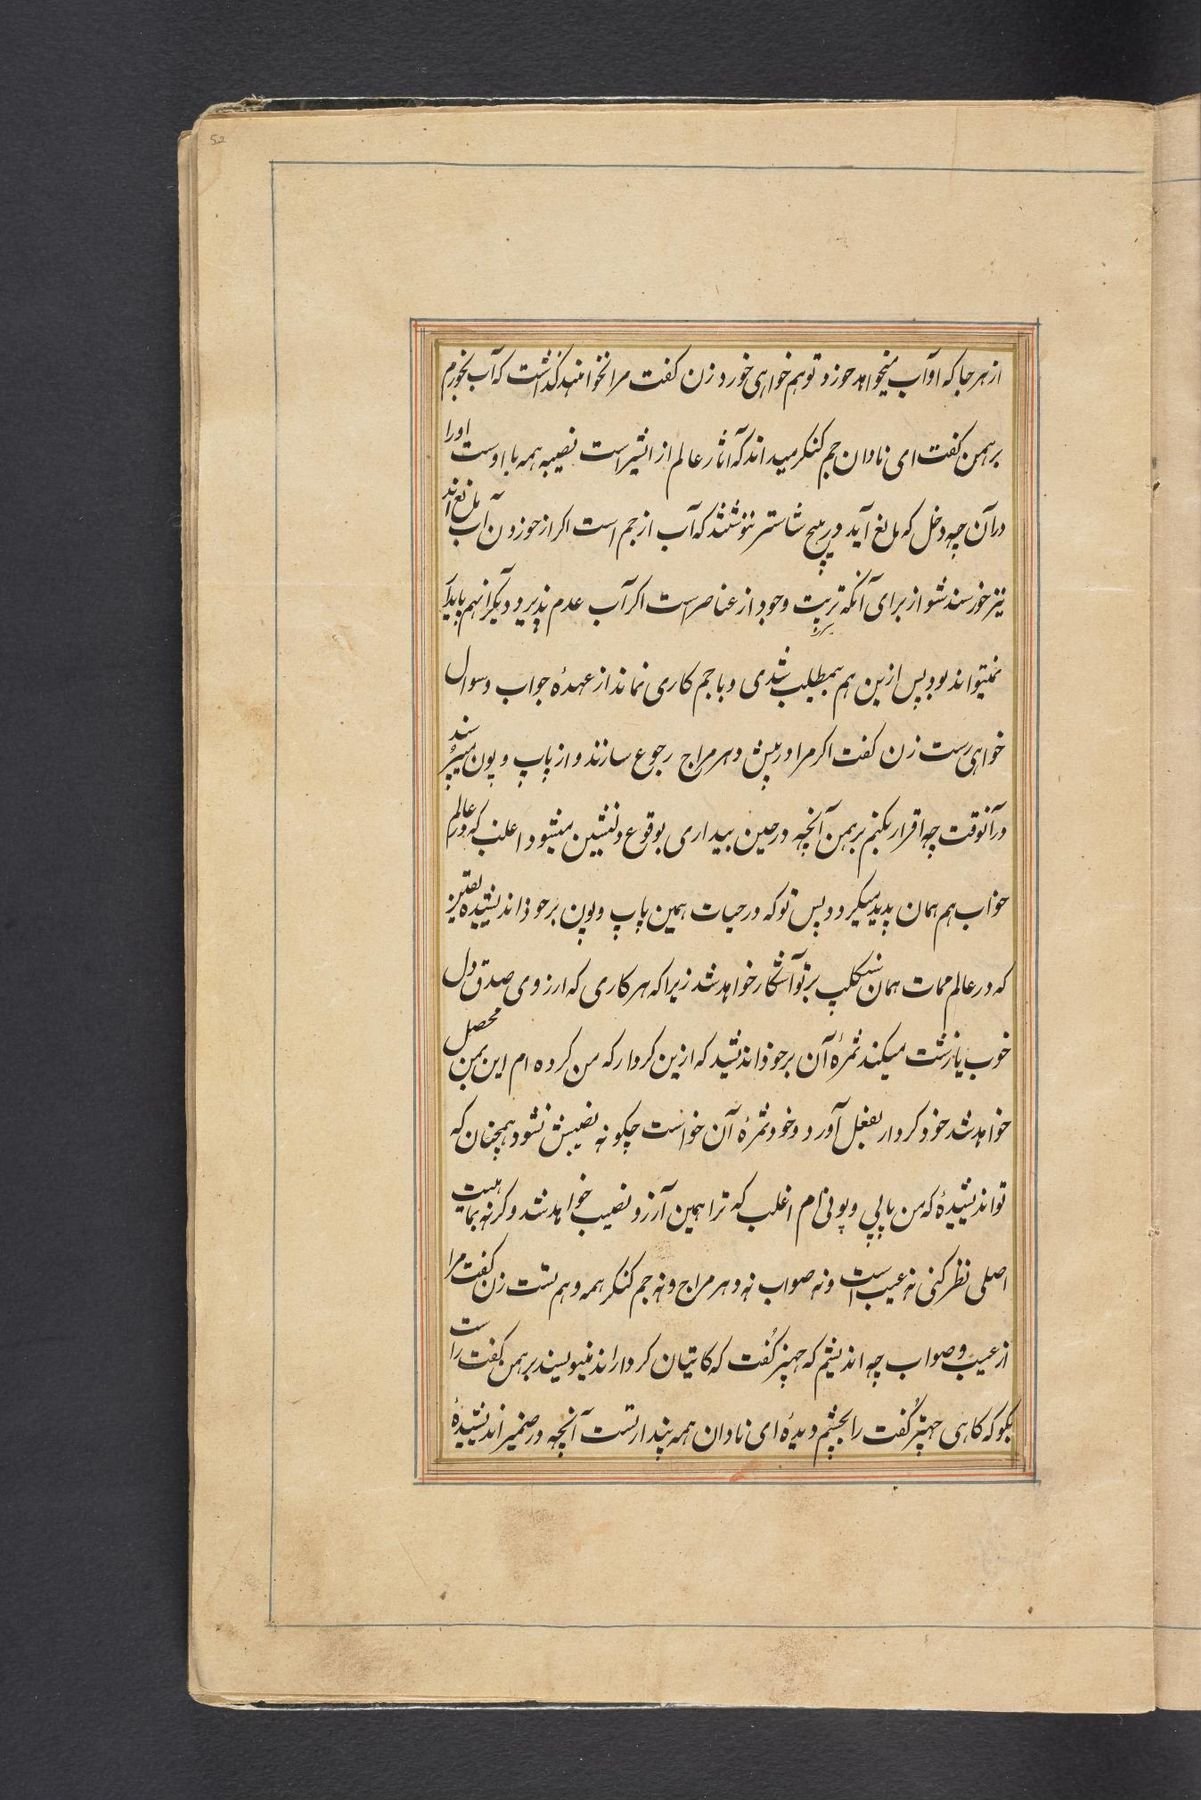 52
از هر جا که او آب میخواهد خورد تو هم خواهی خورد زن کفت مرا نخواهند کذاشت که آب بخورم
برهمن کفت ای نادان جم کنکر میداند که آثار عالم از ایشر است نصیبه همه با اوست اورا
در آن چه دخل که مانع آید در هیچ شاستر ننوشتند که آب از جم است اکر از خوردن آب مانع اند
نیز خورسند شو از برای آنکه تربیت وجود از عناصر است اکر آب عدم پذیرد دیکرانهم باید
نمیتواند بود پس ازین هم بمطلب شدی و با جم کاری نماند از عهدهٔ جواب و سوال
خواهی رست زن کفت اکر مرا در پیش دهرمراج رجوع سازند و از پاپ و پون میپرسند
در آنوقت چه اقرار بکنم برهمن آنچه در حین بیداری بوقوع دلنشین میشود اغلب که در عالم
خواب هم همان پدید میکردد پس تو که در حیات همین پاپ و پون بر خود اندیشیدهٔ یقین
که در عالم ممات همان سنکلپ بر تو آشکار خواهد شد زیرا که هر کاری که ارزوی صدق دل
خوب یا زشت میکند ثمرهٔ آن بر خود اندیشید که ازین کردار که من کرده ام این بمن محصل
خواهد شد خود کردار بفعل آورد و خود ثمرهٔ آن خواست چکونه نصیبش نشود همچنان که
تو اندیشیدهٔ که من پاپی و پونی نام اغلب که ترا همین آرزو نصیب خواهد شد و کرنه بماهیت
اصلی نظر کنی نه عیب است و نه صواب نه دهرمراج و نه جم کنکر همه وهم تست زن کفت مرا
از عیب و صواب چه اندیشم که چهترکفت که کاتبان کرداراند مینویسند برهمن کفت راست
بکو که کاهی چهترکفت را بچشم دیدهٔ ای نادان همه پندار تست آنچه در ضمیر اندیشیدهٔ